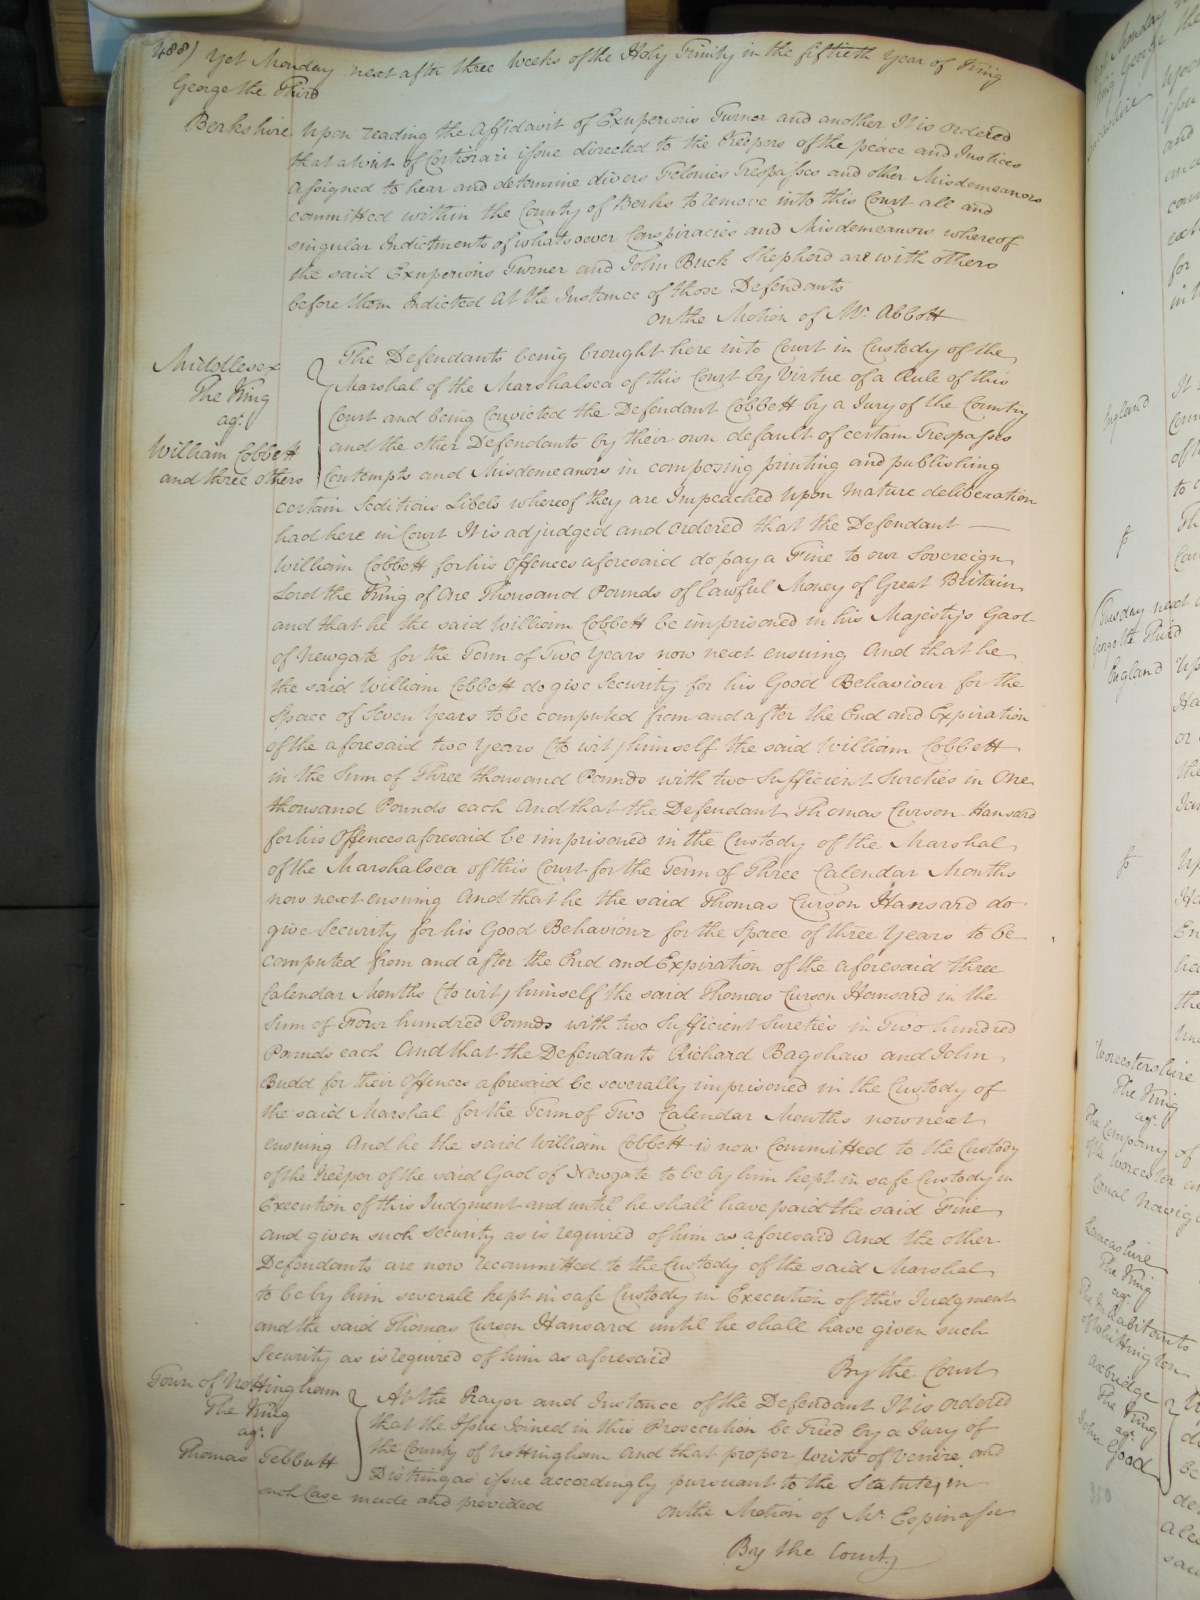 488) Yet Monday next after three Weeks of the Holy Trinity in the fiftieth Year of King
George the Third
Berkshire Upon reading the Affidavit of Exuperious Turner and another It is ordered
that a Writ of Certiorari issue directed to the Keepers of the peace and Justices
assigned to hear and determine divers Felonies Trespasses and other Misdemeanors
committed within the County of Berks to remove into this Court all and
singular Indictments of whatsoever Conspiracies and Misdemeanors whereof
the said Exuperious Turner and John Buck Shepherd are with others
before them Indicted At the Instance of those Defendants
On the Motion of Mr. Abbott
Middlesex
The King
agt.
William Cobbett
and three others
The Defendants being brought here into Court in Custody of the
Marshal of the Marshalsea of this Court by Virtue of a Rule of this
Court and being Convicted the Defendant Cobbett by a Jury of the Country
and the other Defendants by their own default of certain Trespasses
Contempts and Misdemeanors in composing printing and publishing
certain Seditious Libels whereof they are Impeached Upon Mature deliberation
had here in Court It is adjudged and ordered that the Defendant
William Cobbett for his Offences aforesaid do pay a Fine to our Sovereign
Lord the King of One Thousand Pounds of lawful Money of Great Britain
and that he the said William Cobbett be imprisoned in his Majestys Gaol
of Newgate for the Term of Two Years now next ensuing And that he
the said William Cobbett do give Security for his Good Behaviour for the
Space of Seven Years to be computed from and after the End and Expiration
of the aforesaid two Years (to wit) himself the said William Cobbett
in the Sum of Three thousand Pounds with two Sufficient Sureties in One
thousand Pounds each And that the Defendant Thomas Curson Hansard
for his Offences aforesaid be imprisoned in the Custody of the Marshal
of the Marshalsea of this Court for the Term of Three Calendar Months
now next ensuing And that he the said Thomas Curson Hansard do
give Security for his Good Behaviour for the Space of three Years to be
computed from and after the End and Expiration of the aforesaid three
Calendar Months (to wit) himself the said Thomas Curson Hansard in the
Sum of Four hundred Pounds with two Sufficient Sureties in Two hundred
Pounds each And that the Defendants Richard Bagshaw and John
Budd for their Offences aforesaid be severally imprisoned in the Custody of
the said Marshal for the Term of Two Calendar Months now next
ensuing And he the said William Cobbett is now Committed to the Custody
of the Keeper of the said Gaol of Newgate to be by him kept in safe Custody in
Execution of this Judgment and until he shall have paid the said Fine
and given such security as is required of him as aforesaid And the other
Defendants are now recommitted to the Custody of the said Marshal
to be by him severall kept in safe Custody in Execution of this Judgment
and the said Thomas Curson Hansard until he shall have given such
Security as is required of him as aforesaid
By the Court
Town of Nottingham
The King
agt.
Thomas Tebbutt
At the Prayer and Instance of the Defendant It is ordered
that the Issue Joined in this Prosecution be Tried by a Jury of
the County of Nottingham And that proper Writs of Venire and
Distringas issue accordingly pursuant to the Statute in
such Case made and provided
On the Motion of Mr. Espinasse
By the Court
England
Tuesday next
George the Third
England
Worcestershire
The King
agt.
The Company of
of the Worcester
Canal Navig
Lancashire
The King
agt.
The Inhabitants
of Whittington
Axbridge
The King
agt.
John Good
350